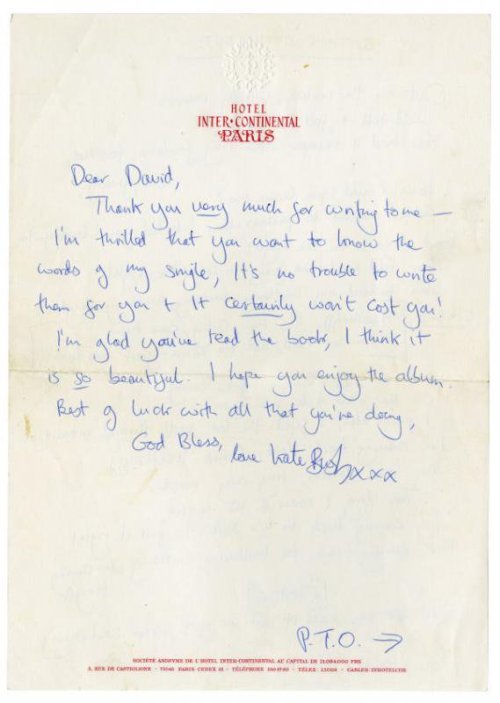 HOTEL
INTER•CONTINENTAL
PARIS
Dear David,
Thank you very much for writing to me –
I'm thrilled that you want to know the
words of my single, It's no trouble to write
them for you + It certainly won't cost you!
I'm glad you've read the book, I think it
is so beautiful. I hope you enjoy the album.
Best of luck with all that you're doing,
God Bless, love Kate Bush xxxx
P.T.O. →
SOCIÉTÉ ANONYME DE L'HOTEL INTER-CONTINENTAL AU CAPITAL DE
3, RUE DE CASTIGLIONE - 75040 PARIS CEDEX 01 - TÉLÉPHONE 260 37 80 - TÉLEX - CABLES: INHOTELCOR